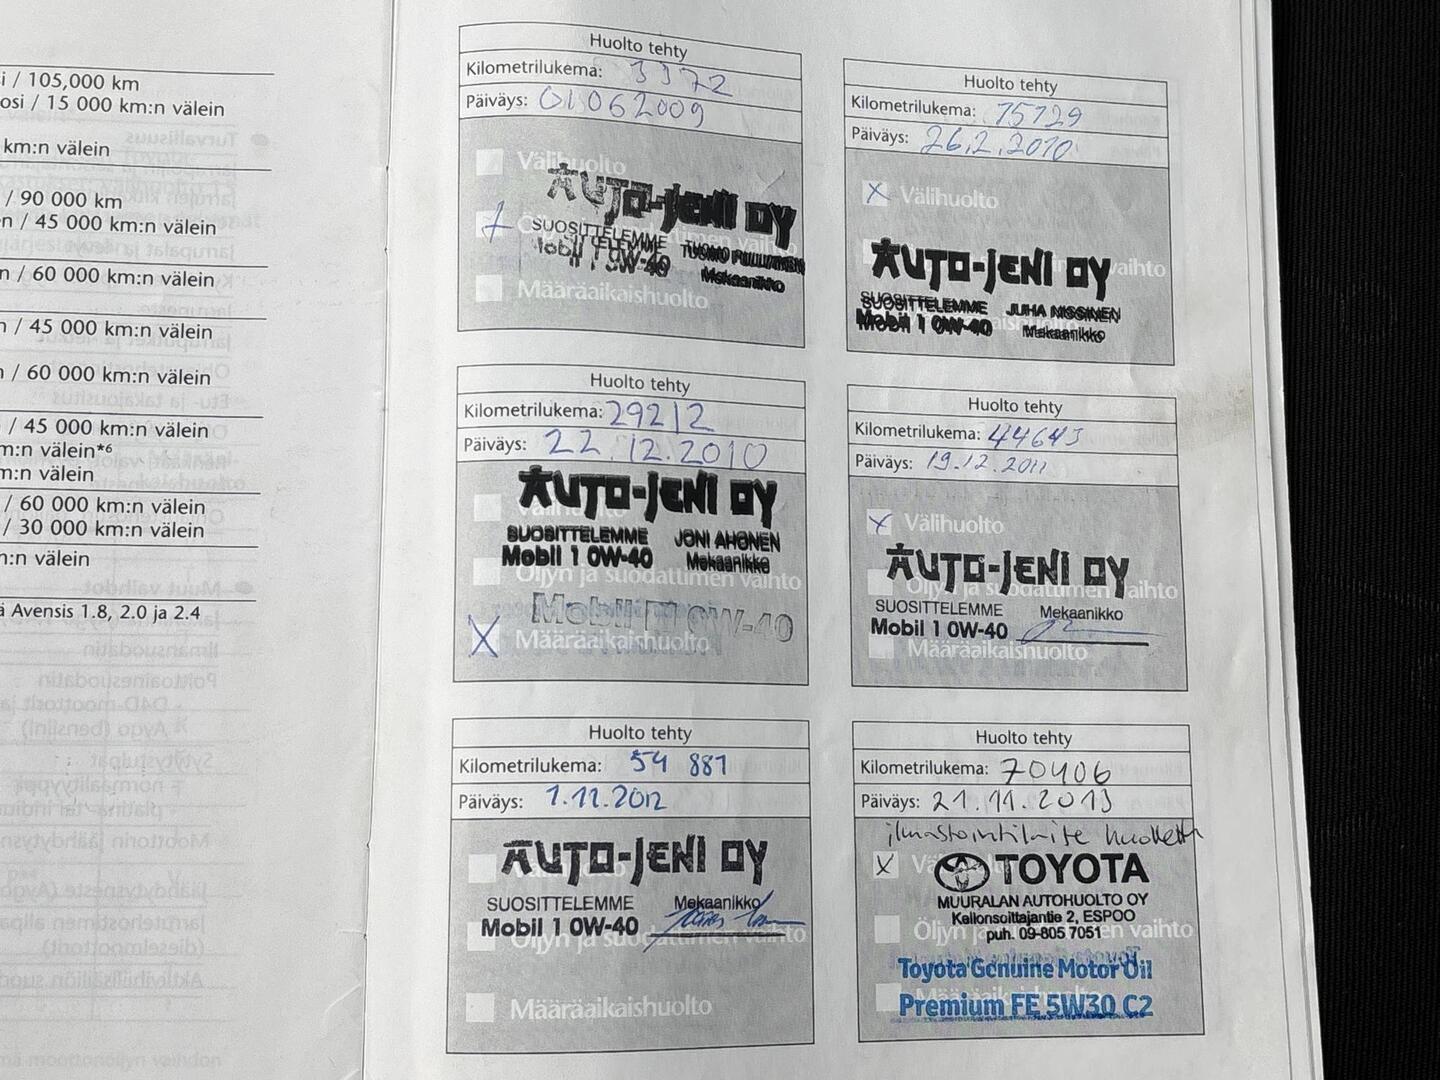 i / 105,000 km
osi / 15 000 km:n välein
km:n välein
/ 90 000 km
n / 45 000 km:n välein
n / 60 000 km:n välein
n / 45 000 km:n välein
n / 60 000 km:n välein
/ 45 000 km:n välein
m:n välein*6
m:n välein
/ 60 000 km:n välein
/ 30 000 km:n välein
m:n välein
ä Avensis 1.8, 2.0 ja 2.4
Huolto tehty
Kilometrilukema: 3372
Päiväys: 01062009
Välihuolto
AUTO-JENI OY
SUOSITTELEMME
Mobil 1 0W-40
Mekaanikko
Määräaikaishuolto
Huolto tehty
Kilometrilukema: 15729
Päiväys: 26.2.2010
X Välihuolto
AUTO-JENI OY
vaihto
SUOSITTELEMME JUHA NISSINEN
Mobil 1 0W-40 Mekaanikko
Huolto tehty
Kilometrilukema: 29212
Päiväys: 22.12.2010
AUTO-JENI OY
SUOSITTELEMME JONI AHONEN
Mobil 1 0W-40 Mekaanikko
Öljyn ja suodattimen vaihto
Mobil 1 0W-40
X Määräaikaishuolto
Huolto tehty
Kilometrilukema: 44643
Päiväys: 19.12.2011
X Välihuolto
AUTO-JENI OY
Öljyn ja suodattimen vaihto
SUOSITTELEMME Mekaanikko
Mobil 1 0W-40
Määräaikaishuolto
Huolto tehty
Kilometrilukema: 54 881
Päiväys: 1.11.2012
AUTO-JENI OY
SUOSITTELEMME Mekaanikko
Mobil 1 0W-40
Öljyn ja suodattimen vaihto
Määräaikaishuolto
Huolto tehty
Kilometrilukema: 70406
Päiväys: 21.11.2013
ilmastointilaite huollettu
X TOYOTA
MUURALAN AUTOHUOLTO OY
Kellonsoittajantie 2, ESPOO
puh. 09-805 7051
Öljyn vaihto
Toyota Genuine Motor Oil
Premium FE 5W30 C2